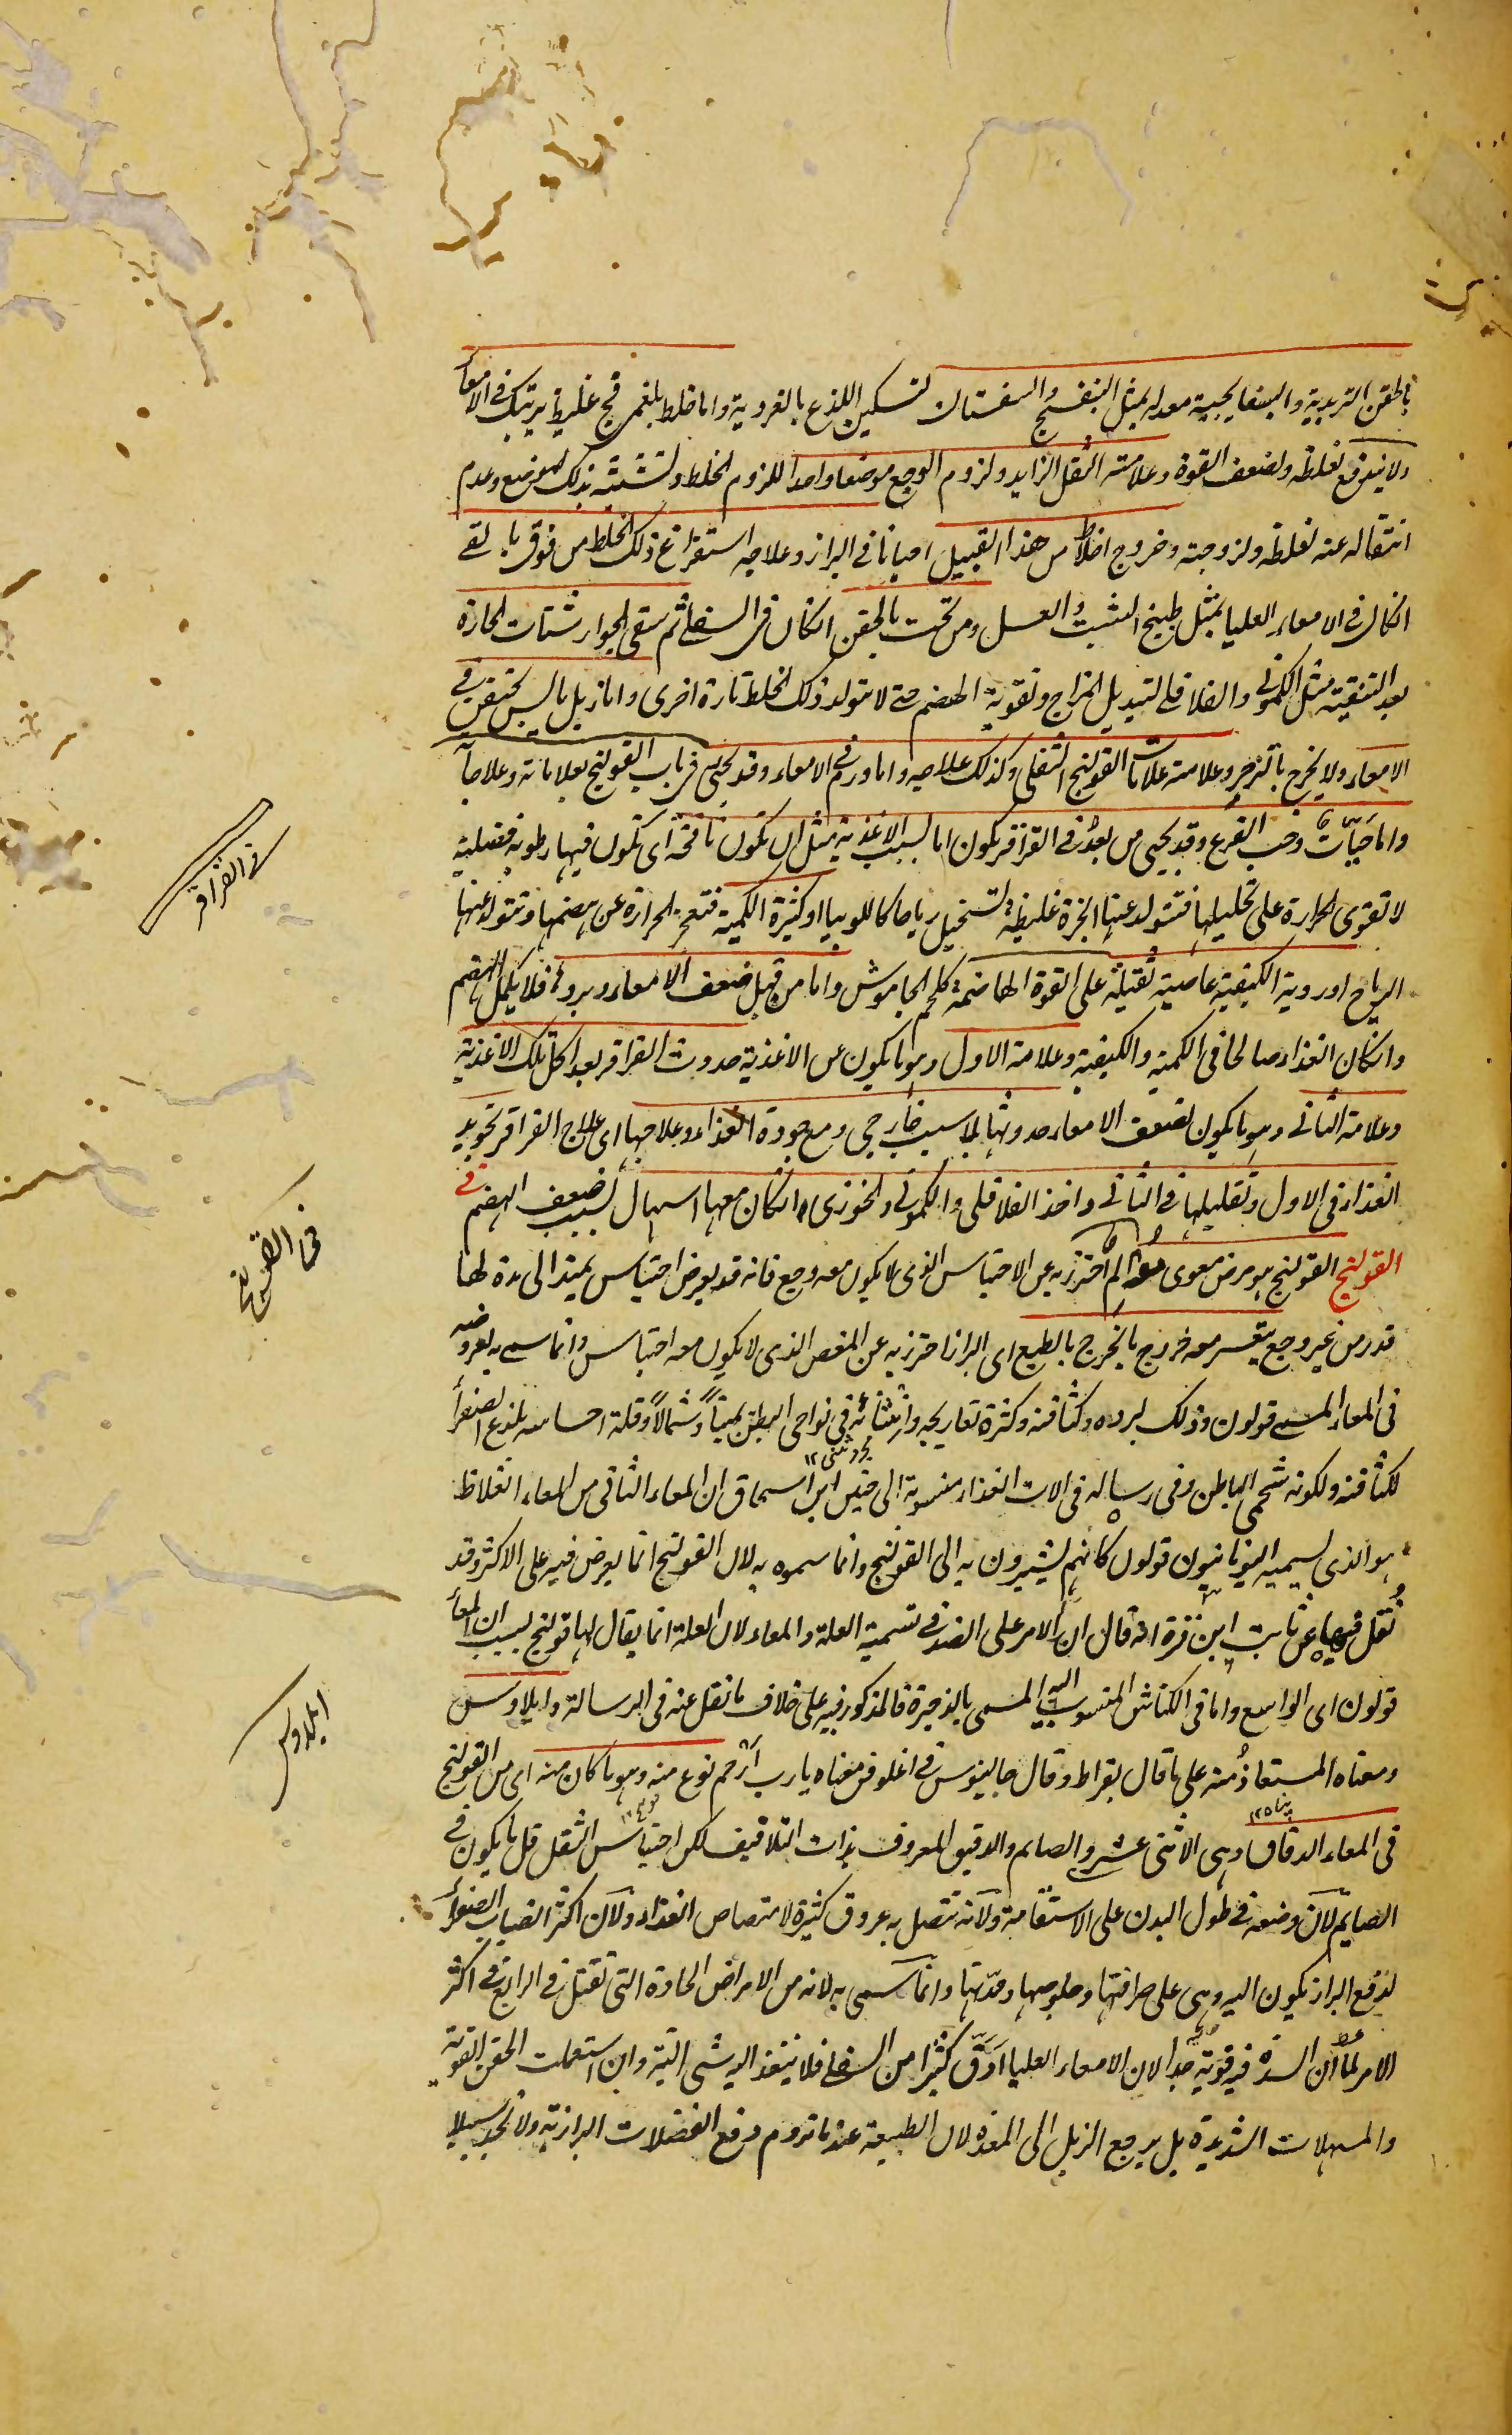 بالحقن التربدية والبسفايجية معدله بمثل البنفسج والسفستان لتسكين اللذع بالغروية واما خلط بلغمى فج غليظ يرتبك فى الامعاء
ولا يندفع لغلظه ولضعف القوة وعلامته الثقل الزايد ولزوم الوجع موضعا واحدا للزوم الخلط وتشبثه بذلك الموضع وعدم
انتقاله عنه لغلظه ولزوجته وخروج اخلاط من هذا القبيل احيانا فى البراز وعلاجه استفراغ ذلك الخلط من فوق بالقى
انكان فى الامعاء العليا بمثل طبيخ الشبث والعسل ومن تحت بالحقن انكان فى السفلى ثم سقى الجوارشنات الحارة
بعد التنقية مثل الكمونى والفلافلى لتبديل المزاج وتقوية الهضم حتى لا يتولد ذلك الخلط تارة اخرى واما زبل يابس يحتقن فى
الامعاء ولا يخرج بالتزحر وعلامته علامات القولنج الثفلى وكذلك علاجه واما ورم فى الامعاء وقد يجيى فى باب القولنج بعلاماته وعلاجاته
واما حيات وحب القرع وقد يجيى من بعد فى القراقر يكون اما بسبب الاغذية مثل ان تكون نافخة اى تكون فيها رطوبة فضلية
لا تقوى الحرارة على تحليلها فتتولد عنها ابخرة غليظة تستحيل رياحا كاللوبيا او كثيرة الكمية فتعجز الحرارة عن هضمها وتتولد عنها
الرياح او ردية الكيفية عاصية ثقيلة على القوة الهاضمة كلحم الجاموش واما من قبل ضعف الامعاء وبرده فلا يكمل الهضم
وانكان الغذاء صالحا فى الكمية والكيفية وعلامة الاول وهو ما يكون من الاغذية حدوث القراقر بعد اكل تلك الاغذية
وعلامة الثانى وهو ما يكون لضعف الامعاء حدوثها بلا سبب خارجى ومع جودة الغذاء وعلاجها اى علاج القراقر تجويد
الغذاء فى الاول وتقليلها فى الثانى واخذ الفلافلى والكمونى والخوزى انكان معها اسهال بسبب ضعف الهضم فى
القولنج القولنج هو مرض معوى مؤلم احترز به عن الاحتباس الذى لا يكون معه وجع فانه قد يعرض احتباس يمتد الى مدة لها
قدر من غير وجع يتعسر معه خروج ما يخرج بالطبع اى البراز احترز به عن المغص الذى لا يكون معه احتباس وانما سمى به لعروضه
فى المعاء المسمى قولون وذلك لبرده وكثافته وكثرة تعاريجه وانثنائه فى نواحى البطن يمينا وشمالا وقلة احساسه بلذع الصفراء
لكثافته ولكونه شحمى الباطن وفى رسالة فى الات الغذاء منسوبة الى حنين ابن اسحاق ان المعاء الثانى من المعاء الغلاظ
هو الذى يسميه اليونانيون قولون كانهم يشيرون به الى القولنج وانما سموه به لان القولنج انما يعرض فيه على الاكثر وقد
نقل فيها عن ثابت ابن قرة انه قال ان الامر على الضد فى تسمية العلة والمعاء لان العلة انما يقال لها قولنج بسبب ان المعاء
قولون اى الواسع واما فى الكناش المنسوب اليه المسمى بالذخيرة فالمذكور فيه على خلاف ما نقل عنه فى الرسالة وايلاوس
ومعناه المستعاذ منه على ما قال بقراط وقال جالينوس فى اغلوقن معناه يا رب ارحم نوع منه وهو ما كان منه اى من القولنج
فى المعاء الدقاق وهى الاثنى عشر والصايم والدقيق المعروف بذات التلافيف لكن احتباس الثفل قل ما يكون فى
الصايم لان وضعه فى طول البدن على الاستقامة ولانه تتصل به عروق كثيرة لامتصاص الغذاء ولان اكثر انصباب الصفراء
لدفع البراز يكون اليه وهى على صرافتها وخلوصها وحدتها وانما سمى به لانه من الامراض الحادة التى تقتل فى الرابع فى اكثر
الامر لما ان السدة فيه قوية جدا لان الامعاء العليا ادق كثيرا من السفلى فلا ينفذ اليه شى البتة وان استعملت الحقن القوية
والمسهلات الشديدة بل يرجع الزبل الى المعدة لان الطبيعة عندما تروم دفع الفضلات البرازية ولا تجد سبيلا
فى القراقر
فى القولنج
ايلاوس